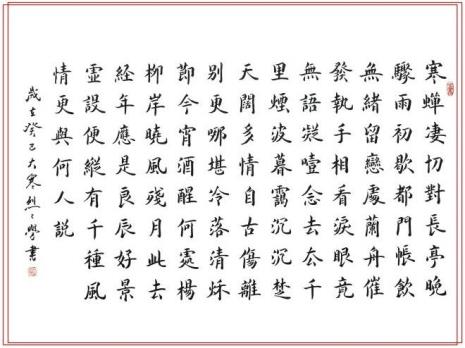 寒蟬凄切對長亭晚
驟雨初歇都門帳飲
無緒留戀處蘭舟催
發執手相看淚眼竟
無語凝噎念去厺千
里煙波暮靄沉沉楚
天闊多情自古傷離
別更哪堪冷落清秌
節今宵酒醒何處楊
柳岸曉風殘月此去
経年應是良辰好景
虛設便縱有千種風
情更與何人説
歲在癸巳大寒烈〻學書